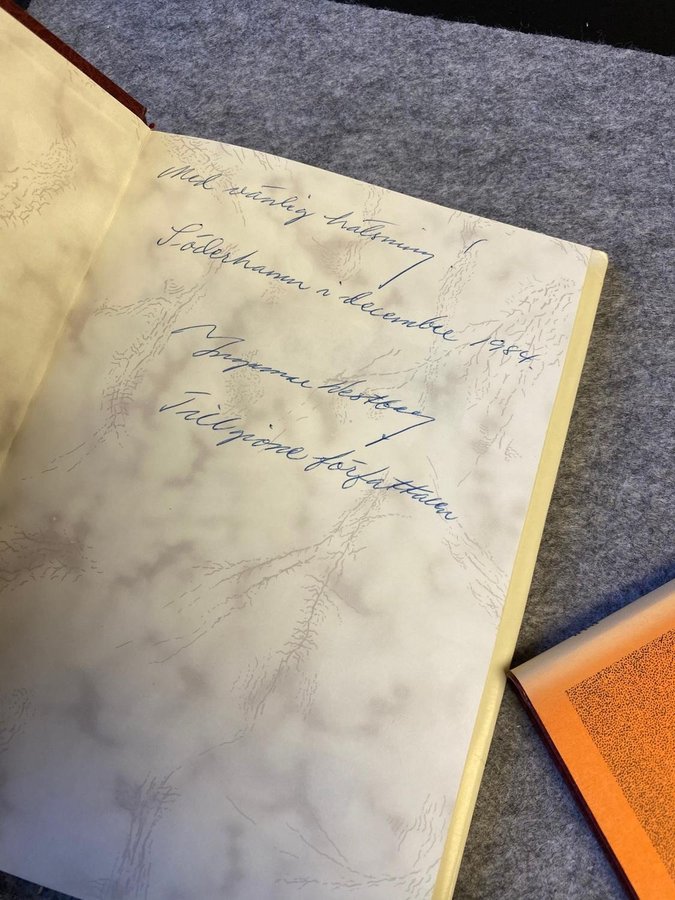 Med vänlig hälsning!
Söderhamn i december 1984.
Yngvar Westberg
författaren